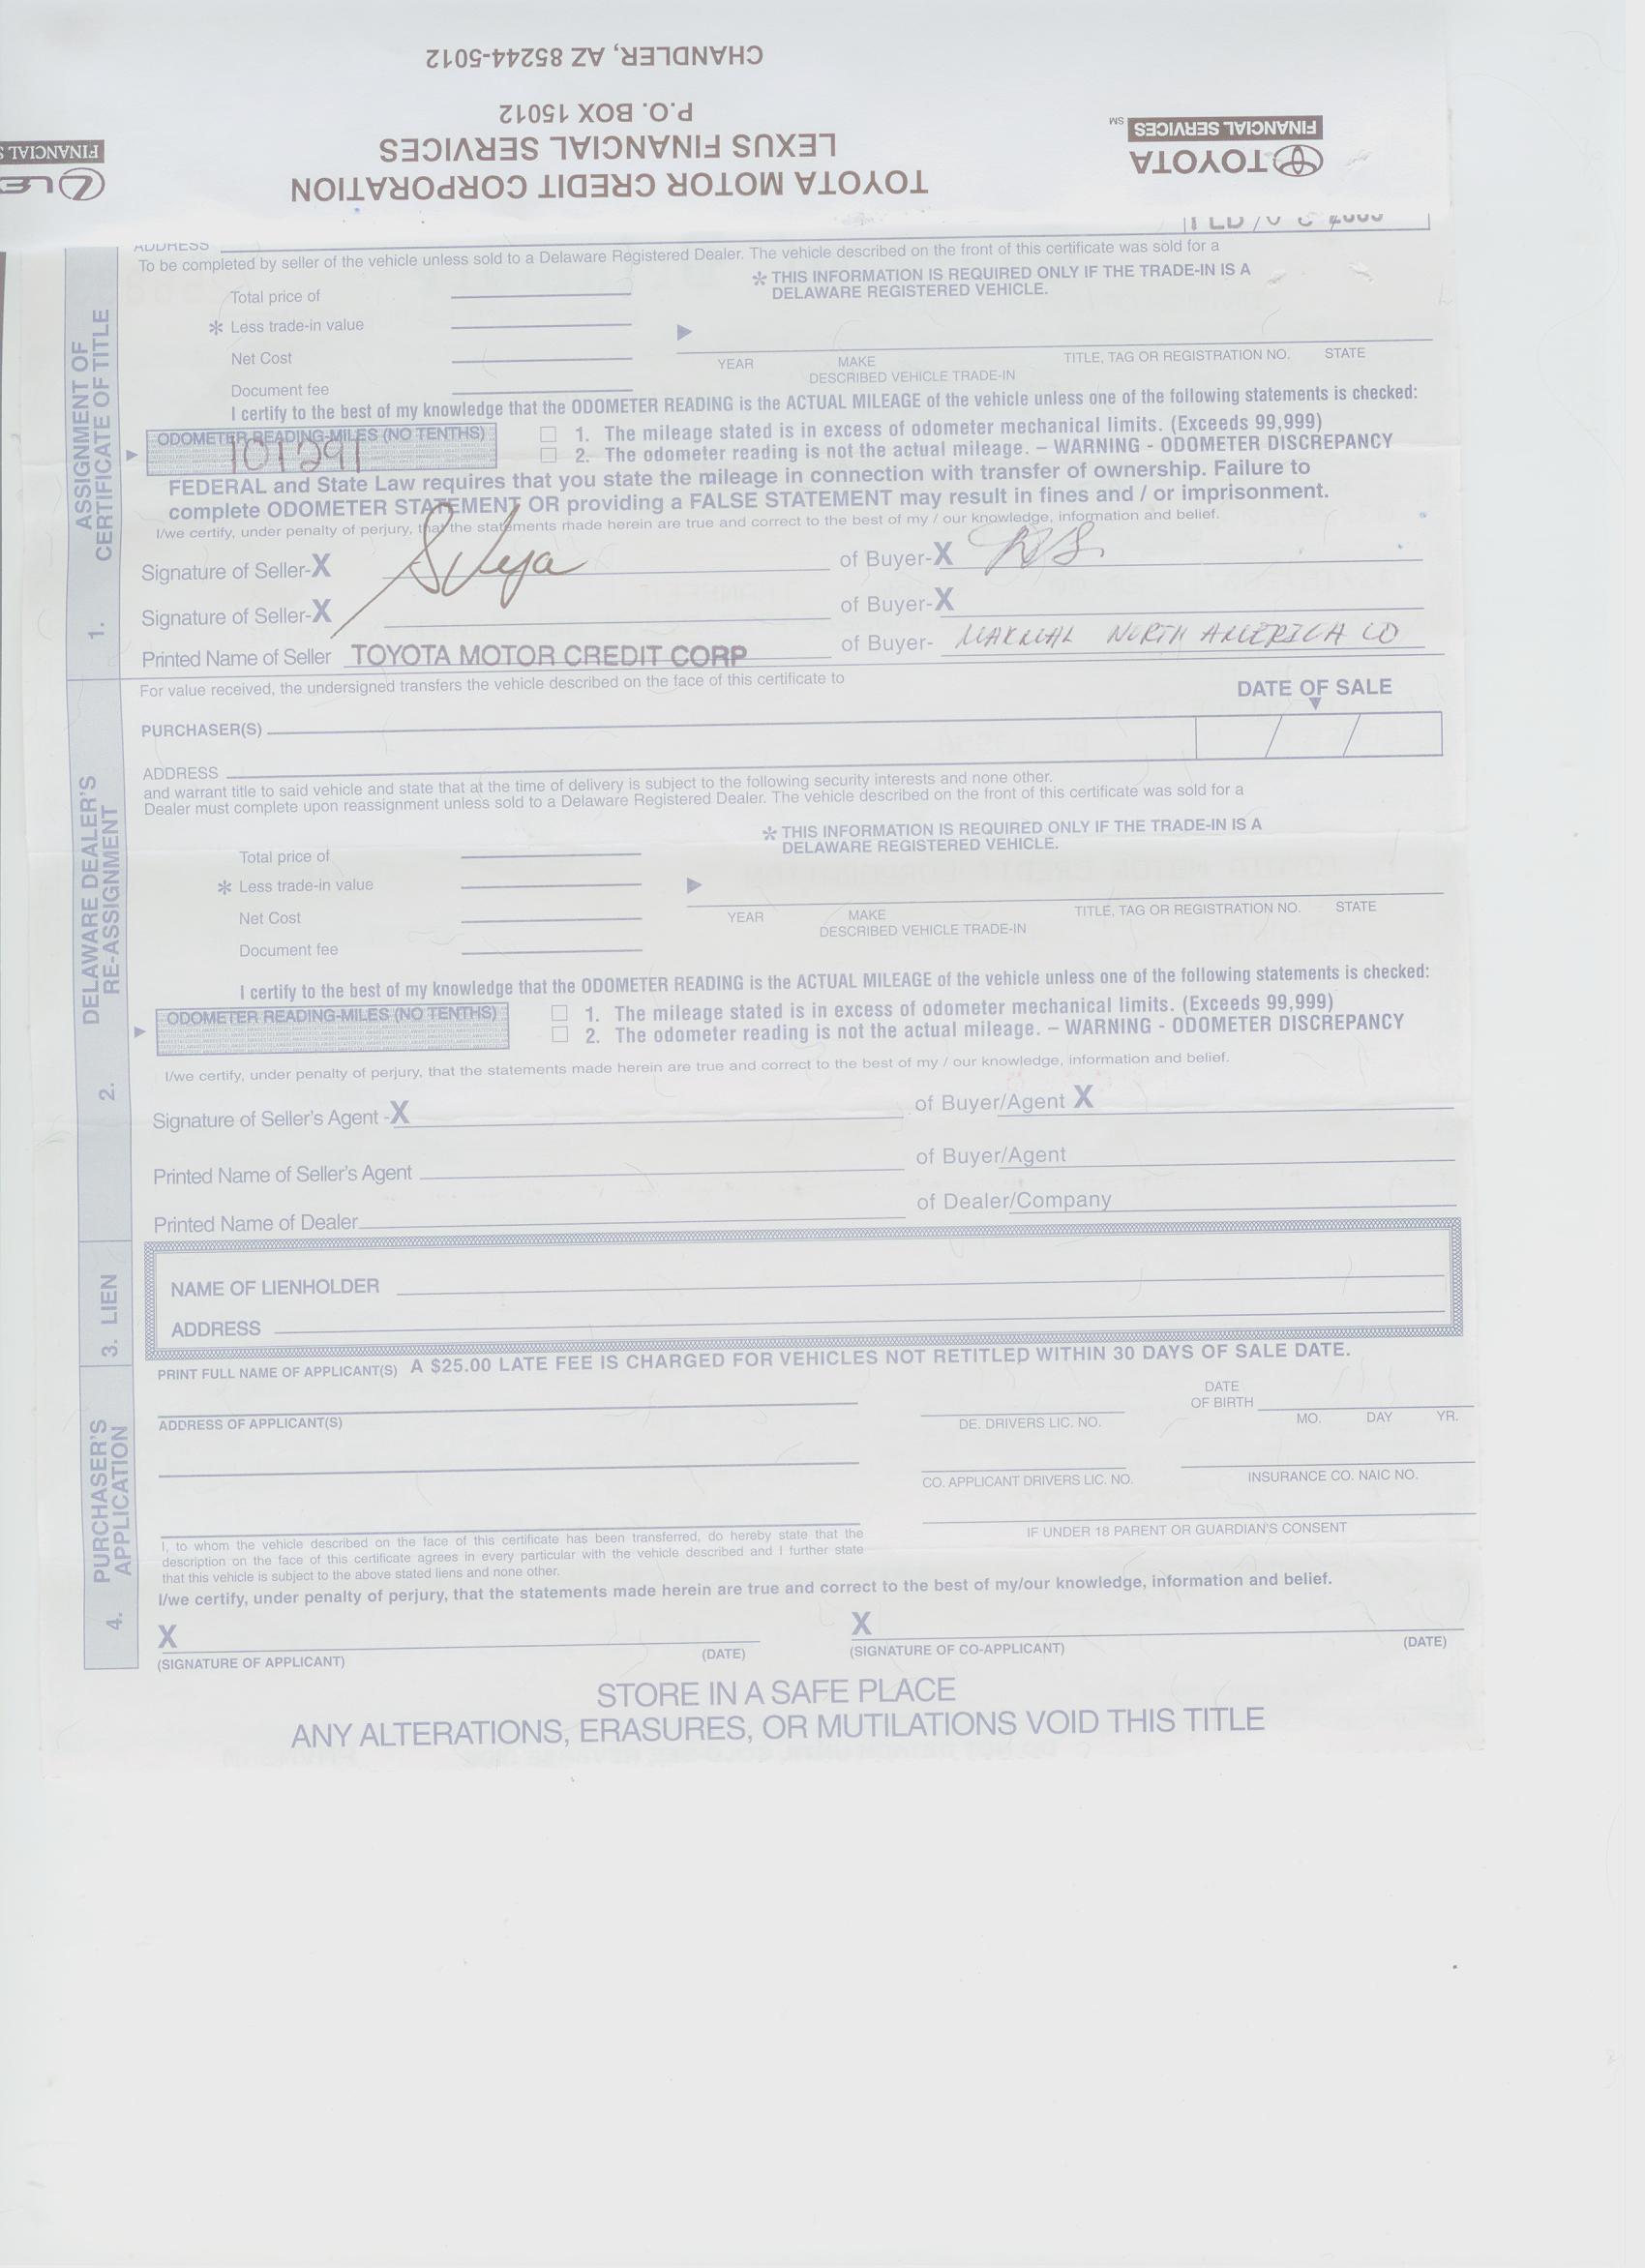 CHANDLER, AZ 85244-5012
P.O. BOX 15012
LEXUS FINANCIAL SERVICES
TOYOTA MOTOR CREDIT CORPORATION
FINANCIAL SERVICES SM
TOYOTA
FINANCIAL S
LE
ADDRESS
To be completed by seller of the vehicle unless sold to a Delaware Registered Dealer. The vehicle described on the front of this certificate was sold for a
Total price of
* THIS INFORMATION IS REQUIRED ONLY IF THE TRADE-IN IS A
DELAWARE REGISTERED VEHICLE.
* Less trade-in value
Net Cost
YEAR MAKE TITLE, TAG OR REGISTRATION NO. STATE
DESCRIBED VEHICLE TRADE-IN
Document fee
I certify to the best of my knowledge that the ODOMETER READING is the ACTUAL MILEAGE of the vehicle unless one of the following statements is checked:
ODOMETER READING-MILES (NO TENTHS)
101291
1. The mileage stated is in excess of odometer mechanical limits. (Exceeds 99,999)
2. The odometer reading is not the actual mileage. – WARNING - ODOMETER DISCREPANCY
FEDERAL and State Law requires that you state the mileage in connection with transfer of ownership. Failure to
complete ODOMETER STATEMENT OR providing a FALSE STATEMENT may result in fines and / or imprisonment.
I/we certify, under penalty of perjury, that the statements made herein are true and correct to the best of my / our knowledge, information and belief.
Signature of Seller-X of Buyer-X
Signature of Seller-X of Buyer-X
Printed Name of Seller TOYOTA MOTOR CREDIT CORP of Buyer- NORTH AMERICA CO
1. ASSIGNMENT OF
CERTIFICATE OF TITLE
For value received, the undersigned transfers the vehicle described on the face of this certificate to
DATE OF SALE
PURCHASER(S)
ADDRESS
and warrant title to said vehicle and state that at the time of delivery is subject to the following security interests and none other.
Dealer must complete upon reassignment unless sold to a Delaware Registered Dealer. The vehicle described on the front of this certificate was sold for a
Total price of
* THIS INFORMATION IS REQUIRED ONLY IF THE TRADE-IN IS A
DELAWARE REGISTERED VEHICLE.
* Less trade-in value
Net Cost
YEAR MAKE TITLE, TAG OR REGISTRATION NO. STATE
DESCRIBED VEHICLE TRADE-IN
Document fee
I certify to the best of my knowledge that the ODOMETER READING is the ACTUAL MILEAGE of the vehicle unless one of the following statements is checked:
ODOMETER READING-MILES (NO TENTHS)
1. The mileage stated is in excess of odometer mechanical limits. (Exceeds 99,999)
2. The odometer reading is not the actual mileage. – WARNING - ODOMETER DISCREPANCY
I/we certify, under penalty of perjury, that the statements made herein are true and correct to the best of my / our knowledge, information and belief.
Signature of Seller's Agent -X of Buyer/Agent X
Printed Name of Seller's Agent of Buyer/Agent
Printed Name of Dealer of Dealer/Company
2. DELAWARE DEALER'S
RE-ASSIGNMENT
NAME OF LIENHOLDER
ADDRESS
3. LIEN
PRINT FULL NAME OF APPLICANT(S) A $25.00 LATE FEE IS CHARGED FOR VEHICLES NOT RETITLED WITHIN 30 DAYS OF SALE DATE.
DATE
OF BIRTH
ADDRESS OF APPLICANT(S) DE. DRIVERS LIC. NO. MO. DAY YR.
CO. APPLICANT DRIVERS LIC. NO. INSURANCE CO. NAIC NO.
IF UNDER 18 PARENT OR GUARDIAN'S CONSENT
I, to whom the vehicle described on the face of this certificate has been transferred, do hereby state that the
description on the face of this certificate agrees in every particular with the vehicle described and I further state
that this vehicle is subject to the above stated liens and none other.
I/we certify, under penalty of perjury, that the statements made herein are true and correct to the best of my/our knowledge, information and belief.
X X
(SIGNATURE OF APPLICANT) (DATE) (SIGNATURE OF CO-APPLICANT) (DATE)
4. PURCHASER'S
APPLICATION
STORE IN A SAFE PLACE
ANY ALTERATIONS, ERASURES, OR MUTILATIONS VOID THIS TITLE